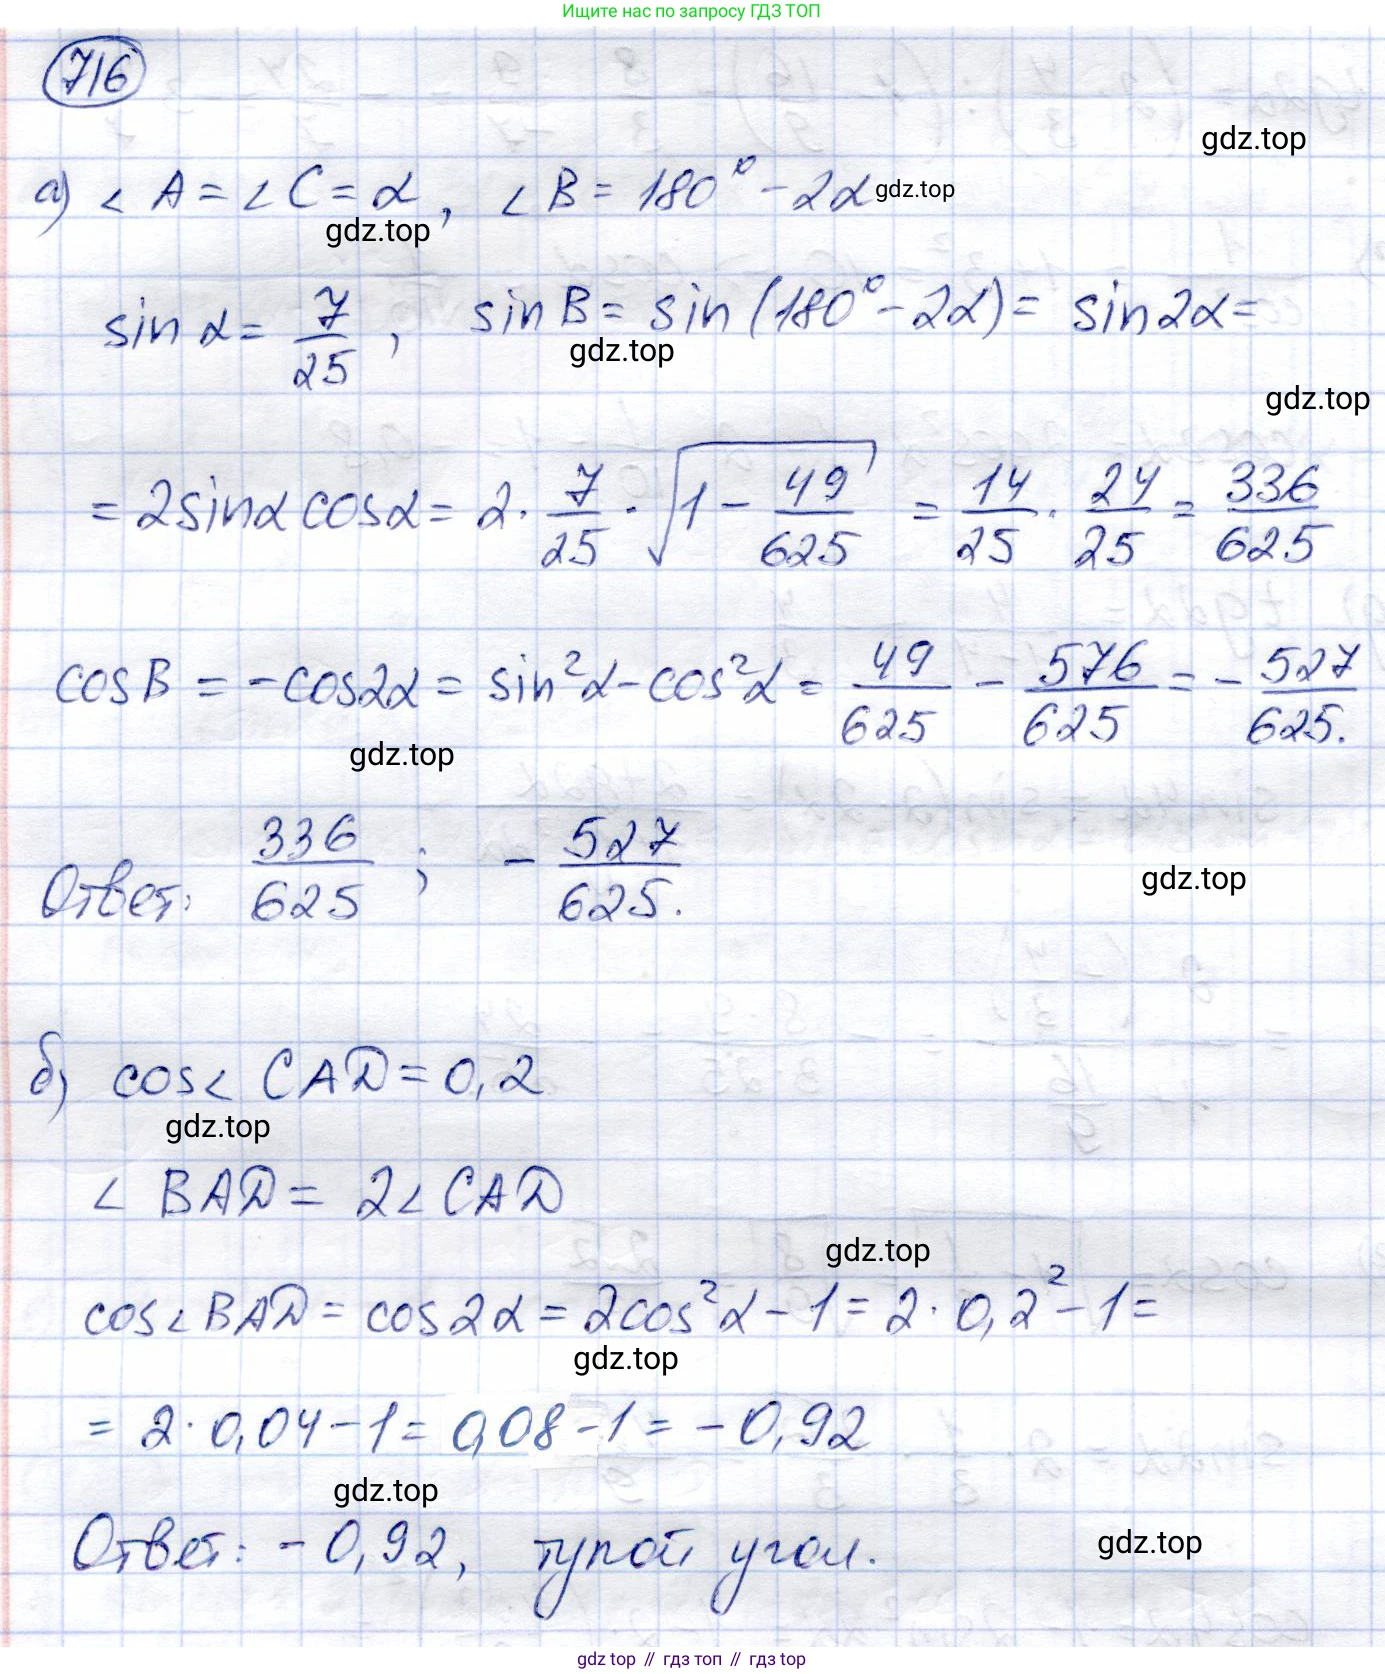 Ищите нас по запросу ГДЗ ТОП
716
gdz.top
а) ∠A = ∠C = α, ∠B = 180° - 2α gdz.top
gdz.top
sin α = 7/25, sin B = sin(180° - 2α) = sin 2α =
gdz.top
gdz.top
= 2 sin α cos α = 2 · 7/25 · √(1 - 49/625) = 14/25 · 24/25 = 336/625
cos B = -cos 2α = sin²α - cos²α = 49/625 - 576/625 = -527/625.
gdz.top
Ответ: 336/625; -527/625.
gdz.top
б) cos∠CAD = 0,2
gdz.top
∠BAD = 2∠CAD
gdz.top
cos∠BAD = cos 2α = 2cos²α - 1 = 2 · 0,2² - 1 =
gdz.top
= 2 · 0,04 - 1 = 0,08 - 1 = -0,92
gdz.top
Ответ: -0,92, тупой угол.
gdz.top
gdz top // гдз топ // гдз top